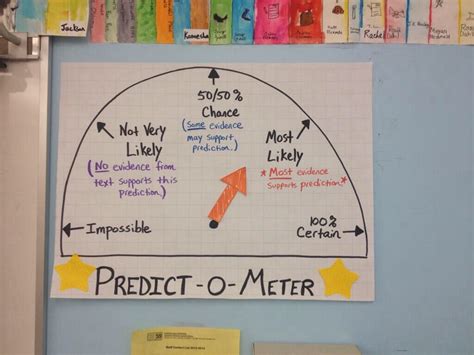 Jackson
Kameesha
Rachel
50/50%
Chance
(Some evidence
may support
prediction.)
Not Very
Likely
(NO evidence from
text supports this
prediction.)
Most
Likely
*Most evidence
supports prediction.*
Impossible
100%
Certain
PREDICT-O-METER